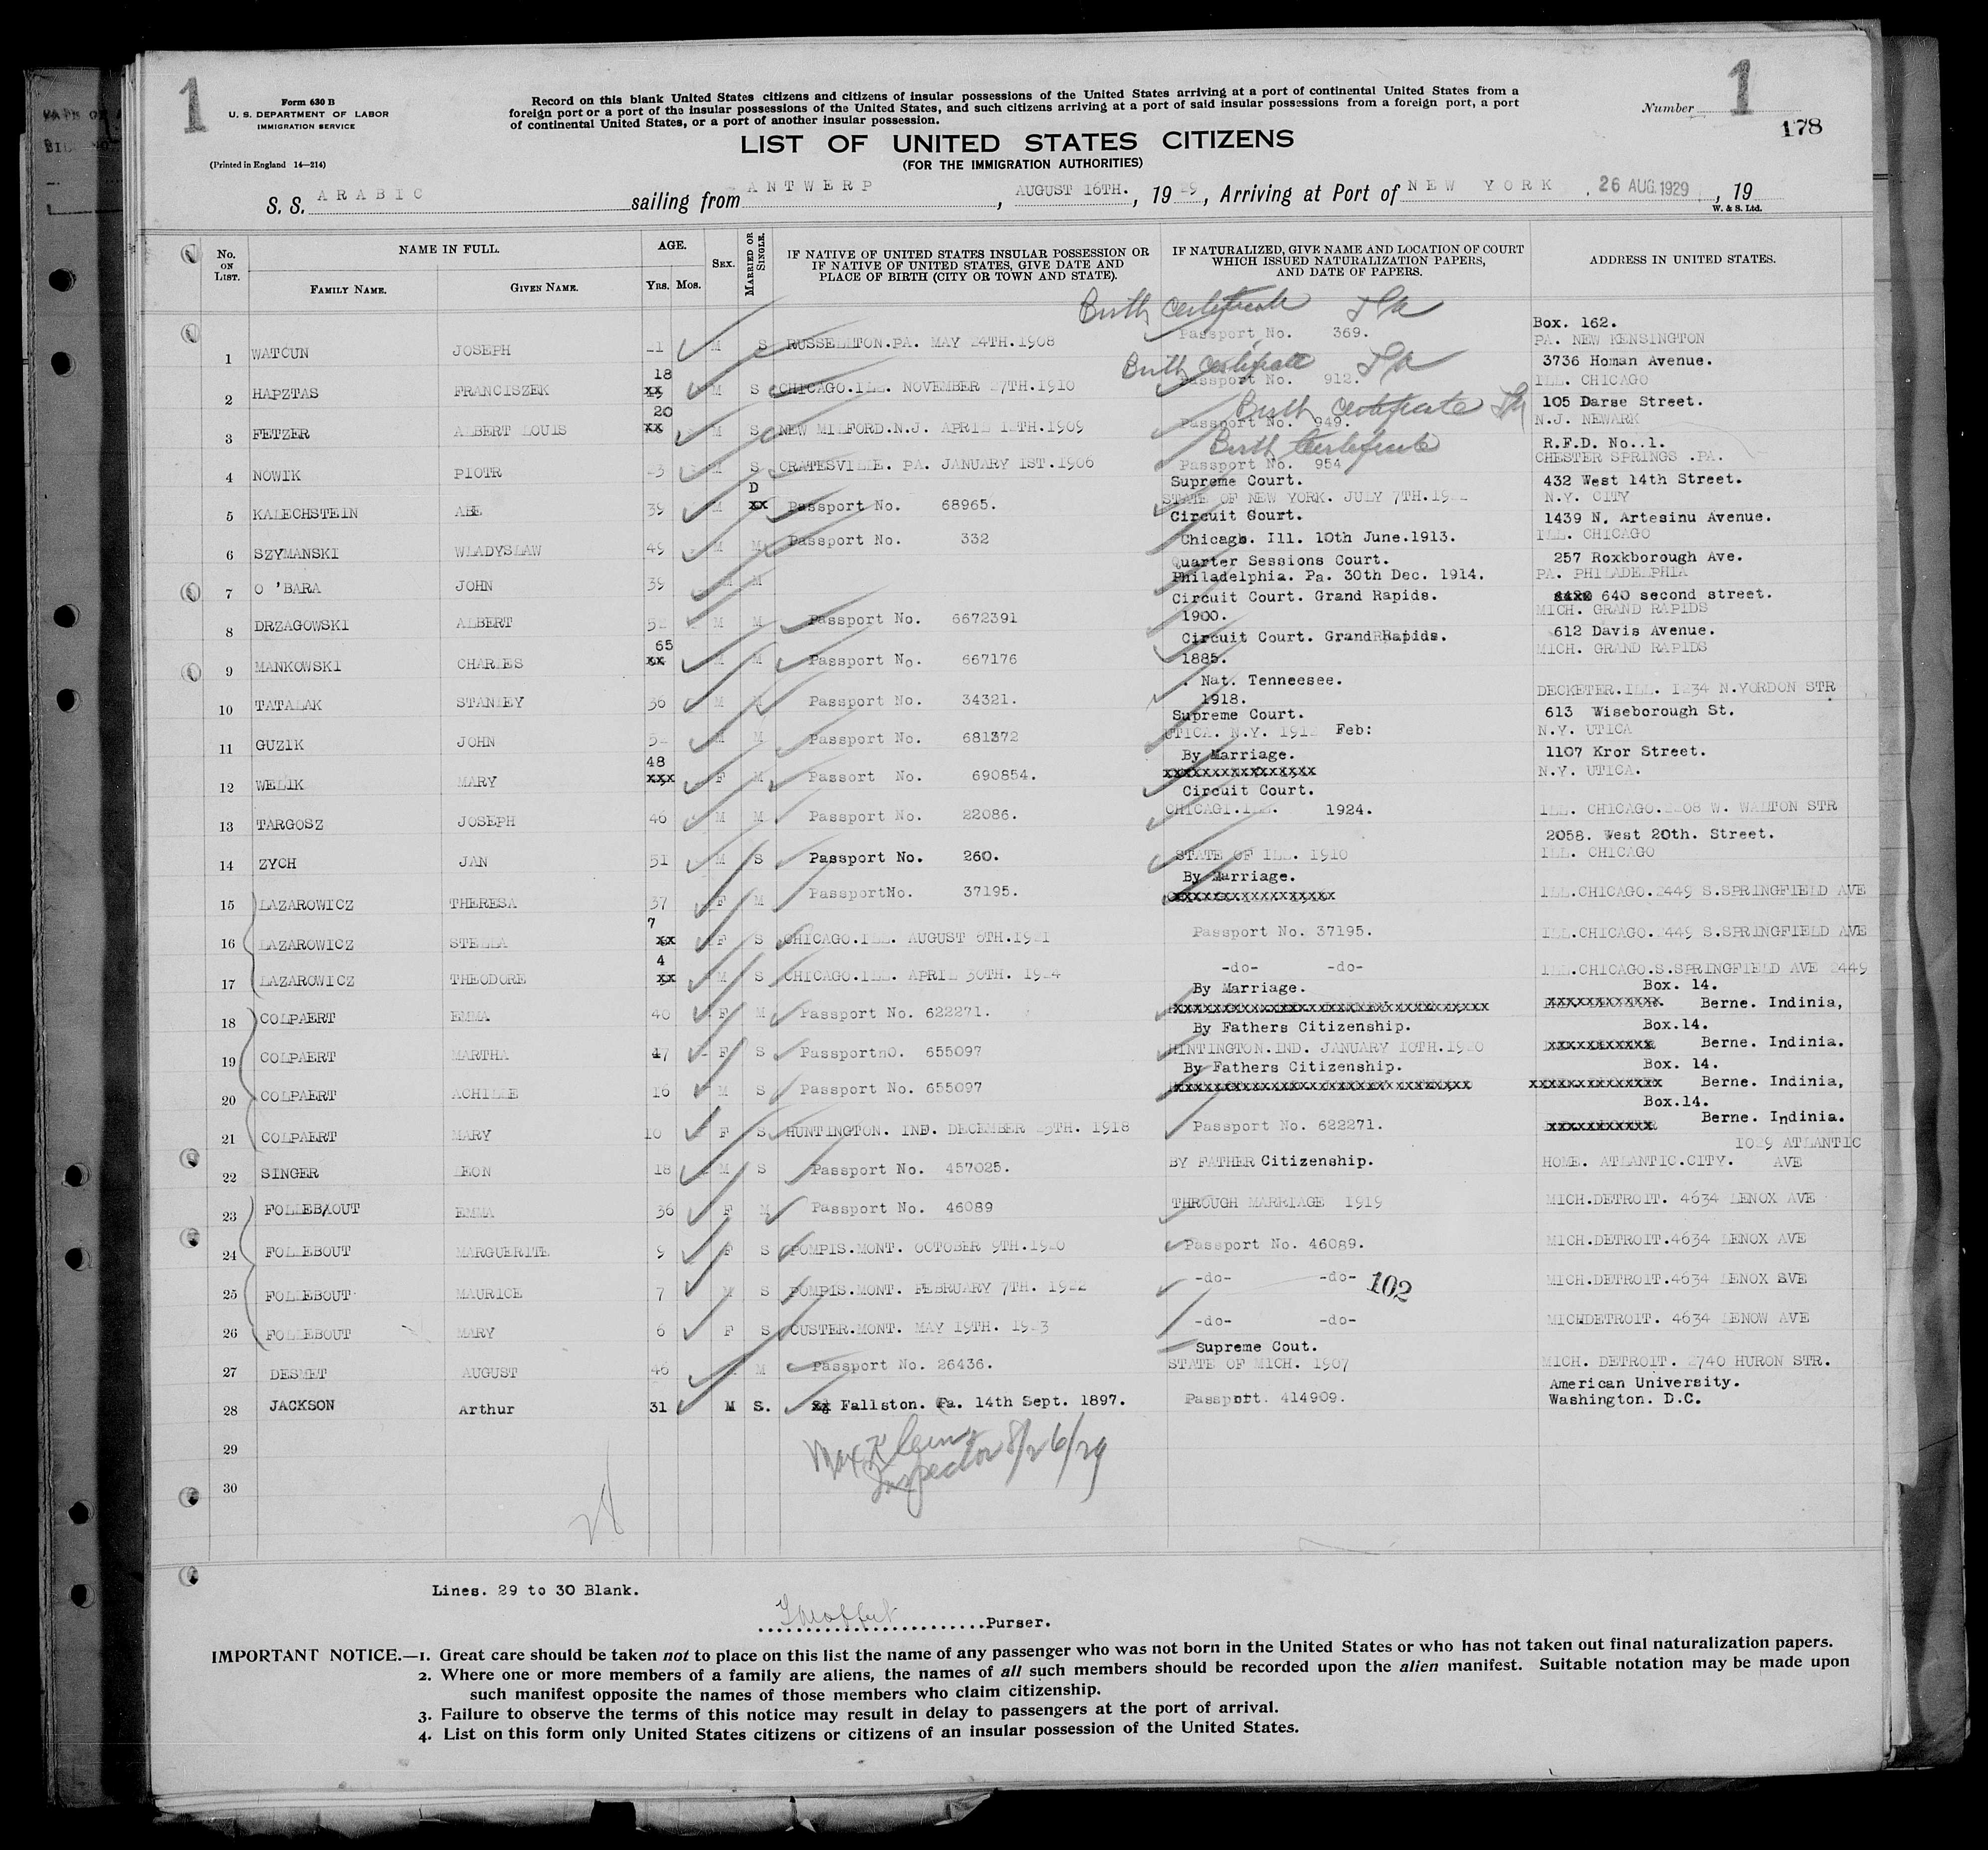 1
Form 630 B
U. S. DEPARTMENT OF LABOR
IMMIGRATION SERVICE
(Printed in England 14—214)
Record on this blank United States citizens and citizens of insular possessions of the United States arriving at a port of continental United States from a
foreign port or a port of the insular possessions of the United States, and such citizens arriving at a port of said insular possessions from a foreign port, a port
of continental United States, or a port of another insular possession.
Number 1
178
LIST OF UNITED STATES CITIZENS
(FOR THE IMMIGRATION AUTHORITIES)
S. S. ARABIC sailing from ANTWERP, AUGUST 16TH., 1929, Arriving at Port of NEW YORK, 26 AUG. 1929, 19
W. & S. Ltd.
No. ON LIST. NAME IN FULL. FAMILY NAME. GIVEN NAME. AGE. YRS. MOS. SEX. MARRIED OR SINGLE. IF NATIVE OF UNITED STATES INSULAR POSSESSION OR IF NATIVE OF UNITED STATES, GIVE DATE AND PLACE OF BIRTH (CITY OR TOWN AND STATE). IF NATURALIZED, GIVE NAME AND LOCATION OF COURT WHICH ISSUED NATURALIZATION PAPERS, AND DATE OF PAPERS. ADDRESS IN UNITED STATES.
Birth Certificate
Box. 162.
1 WATCUN JOSEPH 21 M S RUSSELLTON.PA. MAY 24TH.1908 Passport No. 369. PA. NEW KENSINGTON
18 Birth Certificate 3736 Homan Avenue.
2 HAPZTAS FRANCISZEK xx M S CHICAGO.ILL. NOVEMBER 27TH.1910 Passport No. 912. ILL. CHICAGO
20 Birth Certificate 105 Darse Street.
3 FETZER ALBERT LOUIS xx M S NEW MILFORD.N.J. APRIL 12TH.1909 Passport No. 949. N.J. NEWARK
Birth Certificate R.F.D. No..1.
4 NOWIK PIOTR 23 M S CRATESVILLE. PA. JANUARY 1ST.1906 Passport No. 954 CHESTER SPRINGS .PA.
D Supreme Court. 432 West 14th Street.
5 KALECHSTEIN ABE 39 M xx Passport No. 68965. STATE OF NEW YORK. JULY 7TH.1922 N.Y. CITY
Circuit Court. 1439 N. Artesinu Avenue.
6 SZYMANSKI WLADYSLAW 49 M M Passport No. 332 Chicago. Ill. 10th June.1913. ILL. CHICAGO
Quarter Sessions Court. 257 Roxkborough Ave.
7 O 'BARA JOHN 39 M M Philadelphia. Pa. 30th Dec. 1914. PA. PHILADELPHIA
Circuit Court. Grand Rapids. 640 second street.
8 DRZAGOWSKI ALBERT 52 M M Passport No. 6672391 1900. MICH. GRAND RAPIDS
65 Circuit Court. Grand Rapids. 612 Davis Avenue.
9 MANKOWSKI CHARLES xx M M Passport No. 667176 1885. MICH. GRAND RAPIDS
. Nat. Tenneesee.
10 TATALAK STANLEY 36 M M Passport No. 34321. 1918. DECKETER.ILL. 1234 N.YORDON STR
Supreme Court. 613 Wiseborough St.
11 GUZIK JOHN 52 M M Passport No. 681372 UTICA. N.Y. 1912 Feb: N.Y. UTICA
48 By Marriage. 1107 Kror Street.
12 WELIK MARY xxx F M Passort No. 690854. xxxxxxxxxxxxxxxxx N.Y. UTICA.
Circuit Court.
13 TARGOSZ JOSEPH 46 M M Passport No. 22086. CHICAGI.ILL. 1924. ILL. CHICAGO.2408 W. WALTON STR
2058. West 20th. Street.
14 ZYCH JAN 51 M S Passport No. 260. STATE OF ILL. 1910 ILL. CHICAGO
By Marriage.
15 LAZAROWICZ THERESA 37 F M PassportNo. 37195. xxxxxxxxxxxxxxxxxx ILL.CHICAGO.2449 S.SPRINGFIELD AVE
7
16 LAZAROWICZ STELLA xx F S CHICAGO.ILL. AUGUST 6TH.1921 Passport No. 37195. ILL.CHICAGO.2449 S.SPRINGFIELD AVE
4
17 LAZAROWICZ THEODORE xx M S CHICAGO.ILL. APRIL 30TH. 1924 -do- -do- ILL.CHICAGO.S.SPRINGFIELD AVE 2449
By Marriage. Box. 14.
18 COLPAERT EMMA 40 F M Passport No. 622271. Berne. Indinia,
By Fathers Citizenship. Box.14.
19 COLPAERT MARTHA 17 F S PassportnO. 655097 HINTINGTON.IND. JANUARY 10TH.1920 Berne. Indinia.
By Fathers Citizenship. Box. 14.
20 COLPAERT ACHILLE 16 M S Passport No. 655097 Berne. Indinia,
Box.14.
21 COLPAERT MARY 10 F S HUNTINGTON. IND. DECEMBER 25TH. 1918 Passport No. 622271. Berne. Indinia.
1029 ATLANTIC
22 SINGER LEON 18 M S Passport No. 457025. BY FATHER Citizenship. HOME. ATLANTIC.CITY. AVE
23 FOLLEBAOUT EMMA 36 F M Passport No. 46089 THROUGH MARRIAGE 1919 MICH.DETROIT. 4634 LENOX AVE
24 FOLLEBOUT MARGUERITE 9 F S POMPIS.MONT. OCTOBER 9TH.1920 Passport No. 46089. MICH.DETROIT.4634 LENOX AVE
25 FOLLEBOUT MAURICE 7 M S POMPIS.MONT. FEBRUARY 7TH. 1922 -do- -do- 102 MICH.DETROIT.4634 LENOX SVE
26 FOLLEBOUT MARY 6 F S CUSTER.MONT. MAY 19TH. 1923 -do- -do- MICHDETROIT. 4634 LENOW AVE
Supreme Cout.
27 DESMET AUGUST 46 M Passport No. 26436. STATE OF MICH. 1907 MICH. DETROIT. 2740 HURON STR.
American University.
28 JACKSON Arthur 31 M S. Fallston. Pa. 14th Sept. 1897. Passport. 414909. Washington. D.C.
29
Max Klein
Inspector 8/26/29
30
Lines. 29 to 30 Blank.
Purser.
IMPORTANT NOTICE.—1. Great care should be taken not to place on this list the name of any passenger who was not born in the United States or who has not taken out final naturalization papers.
2. Where one or more members of a family are aliens, the names of all such members should be recorded upon the alien manifest. Suitable notation may be made upon
such manifest opposite the names of those members who claim citizenship.
3. Failure to observe the terms of this notice may result in delay to passengers at the port of arrival.
4. List on this form only United States citizens or citizens of an insular possession of the United States.